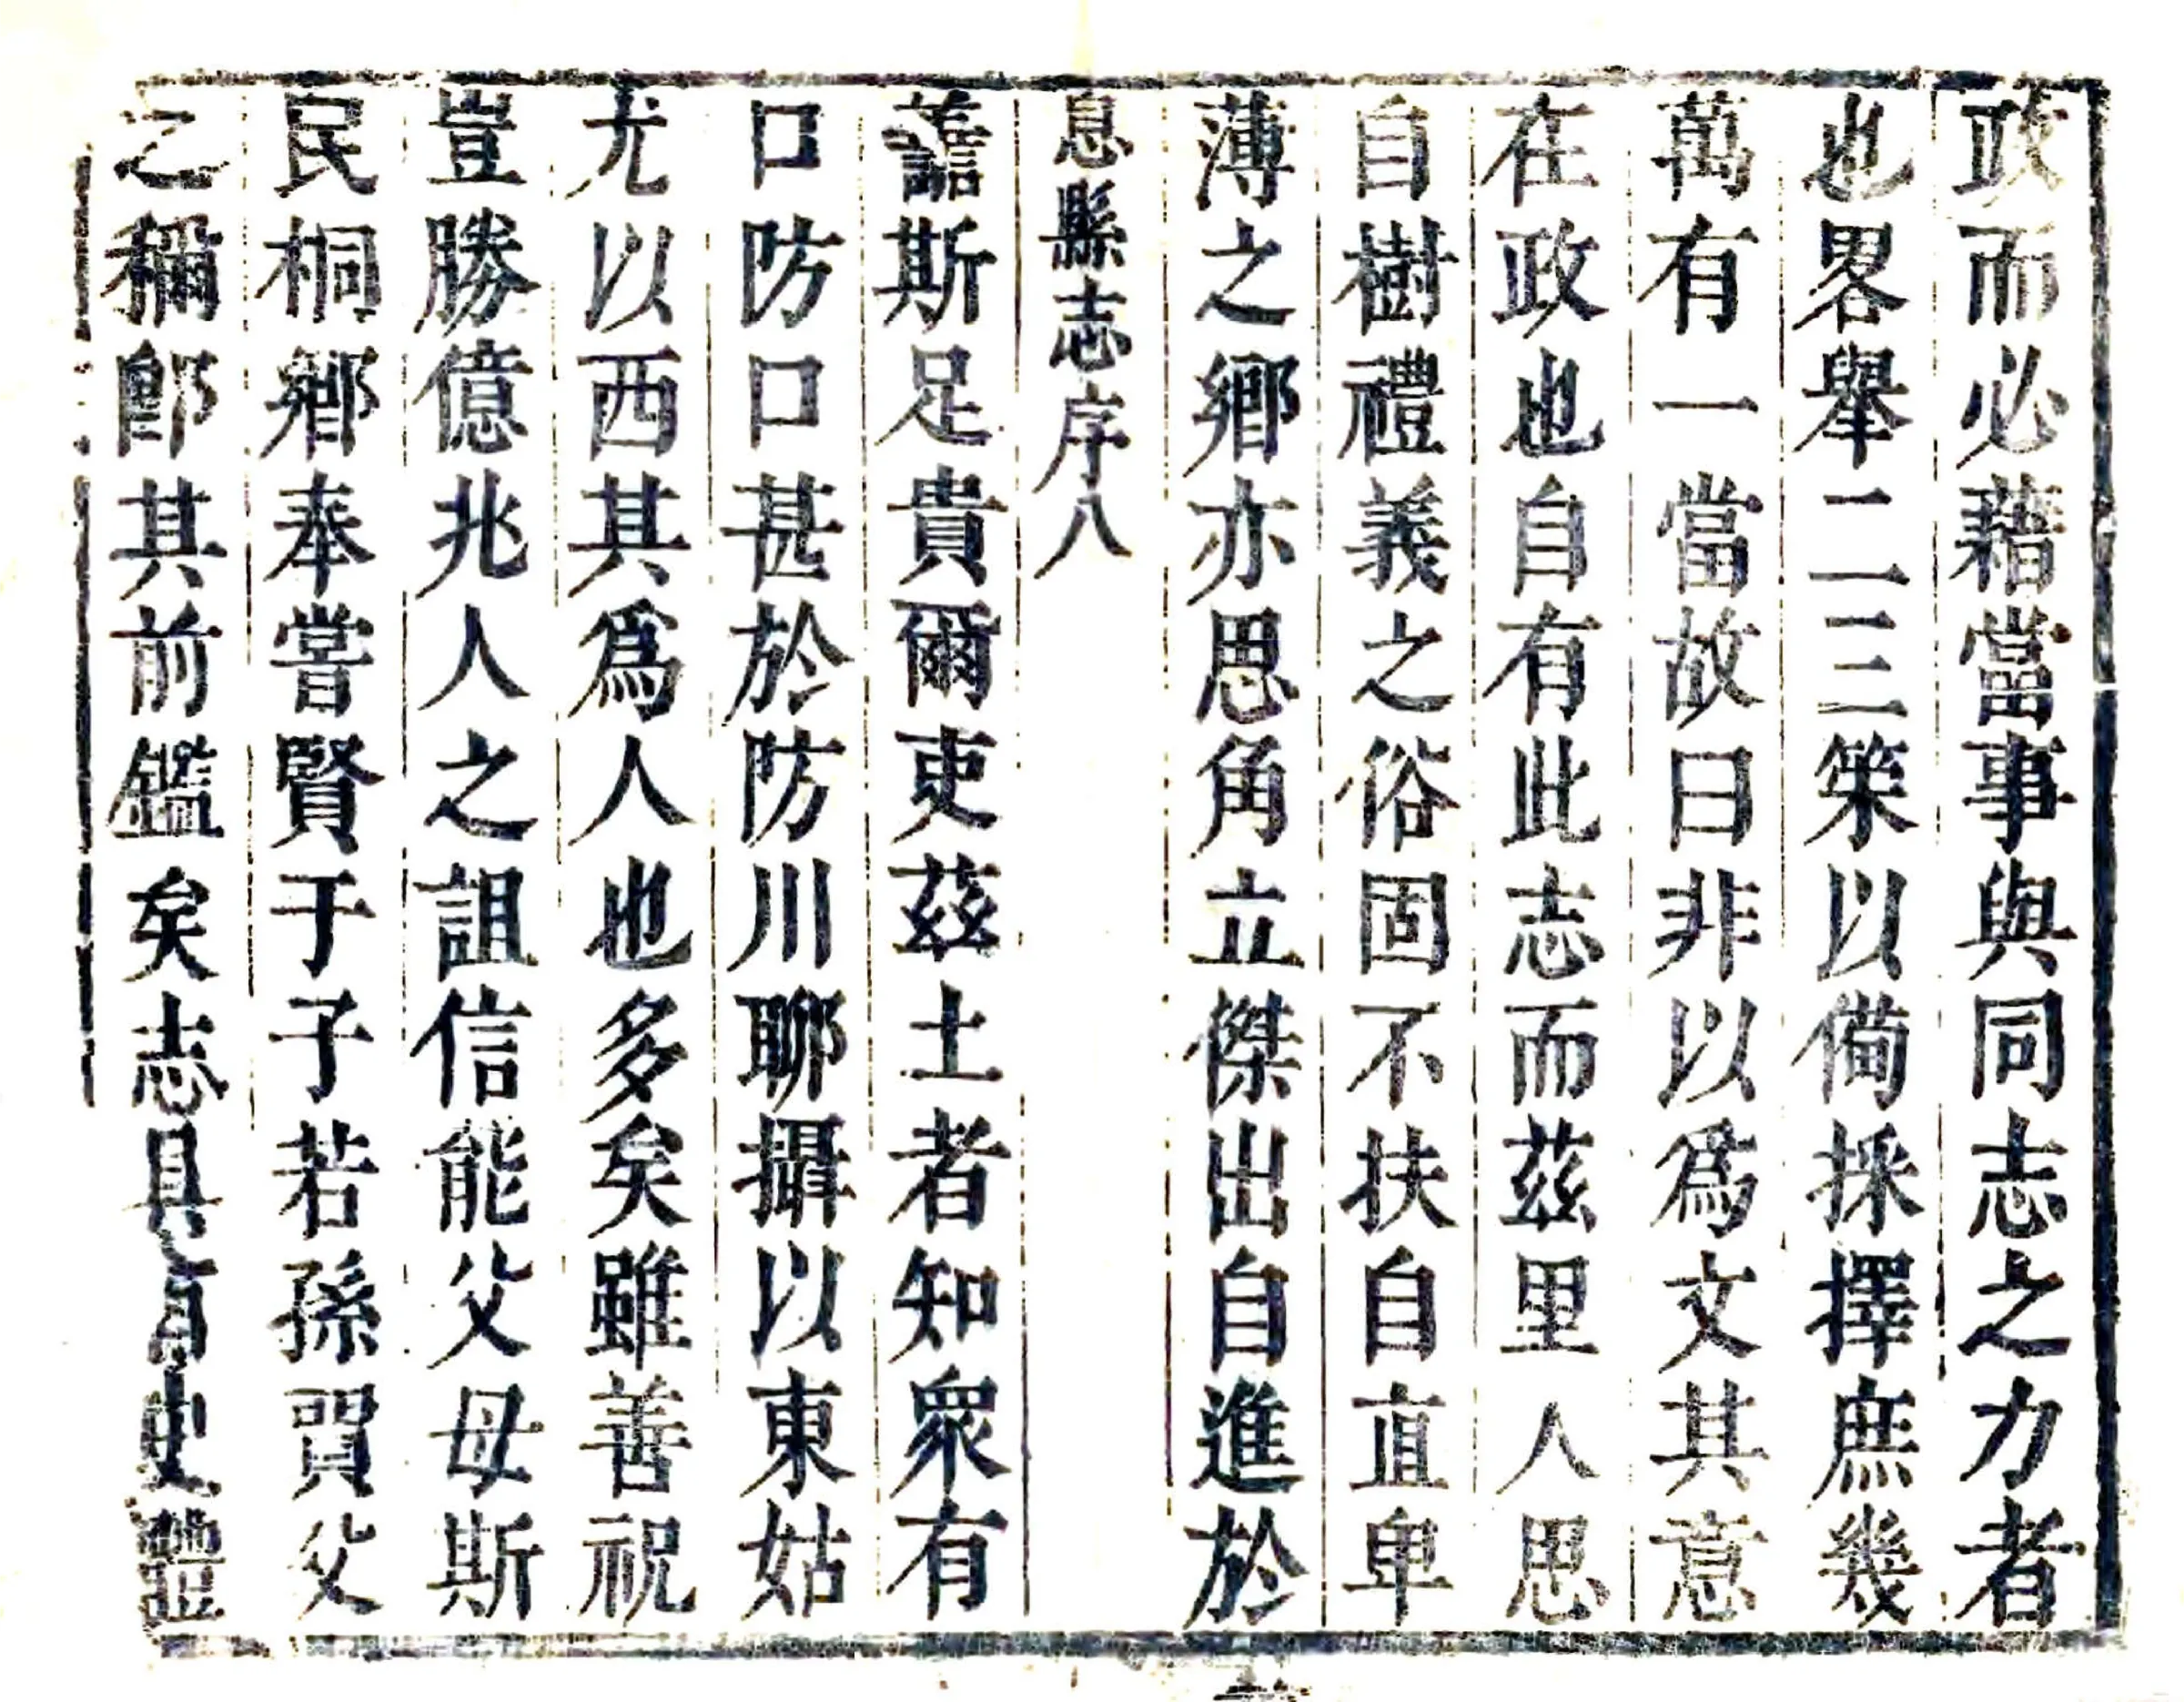 政而必藉當事與同志之力者
也畧舉二三策以俻採擇庶幾
萬有一當故曰非以爲文其意
在政也自有此志而茲里人思
自樹禮義之俗固不扶自直卑
薄之鄉亦思角立傑出自進於
息縣志序八
譱斯足貴爾吏茲土者知衆有
口防口甚於防川聊攝以東姑
尤以西其爲人也多矣雖善祝
豈勝億兆人之詛信能父母斯
民桐鄉奉嘗賢于子若孫賈父
之稱郎其前鑑矣志具有史體